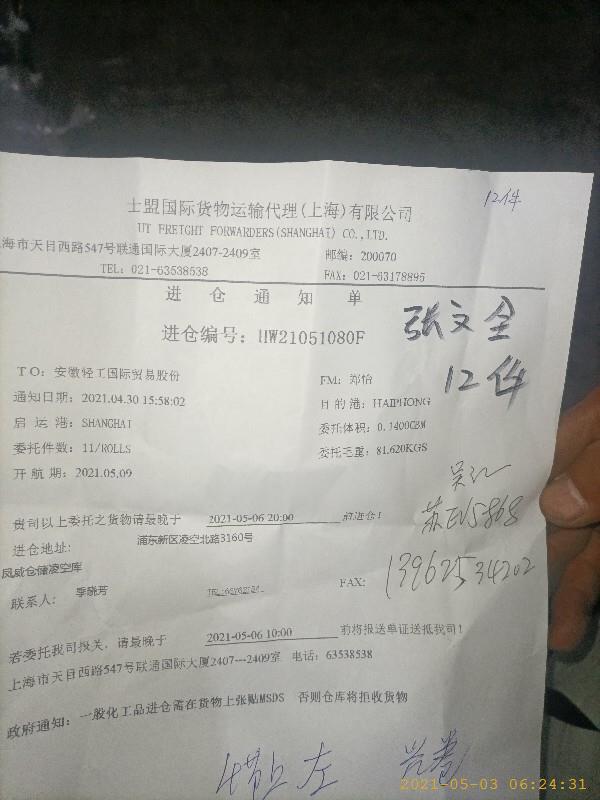 12件
士盟国际货物运输代理(上海)有限公司
UT FREIGHT FORWARDERS(SHANGHAI) CO.,LTD.
海市天目西路547号联通国际大厦2407-2409室 邮编: 200070
TEL: 021-63538538 FAX: 021-63178895
进仓通知单
进仓编号: HW21051080F
张文全
12件
TO: 安徽轻工国际贸易股份 FM: 郑怡
通知日期: 2021.04.30 15:58:02 目的港: HAIPHONG
启运港: SHANGHAI 委托体积: 0.1400CBM
委托件数: 11/ROLLS 委托毛重: 81.620KGS
开航期: 2021.05.09
吴江
苏EV5868
13962534202
贵司以上委托之货物请最晚于 2021-05-06 20:00 前进仓!
进仓地址: 浦东新区凌空北路3160号
凤威仓储凌空库
联系人: 李晓芳 TEL: FAX:
若委托我司报关, 请最晚于 2021-05-06 10:00 前将报送单证送抵我司!
上海市天目西路547号联通国际大厦2407---2409室 电话: 63538538
政府通知: 一般化工品进仓需在货物上张贴MSDS 否则仓库将拒收货物
左
2021-05-03 06:24:31